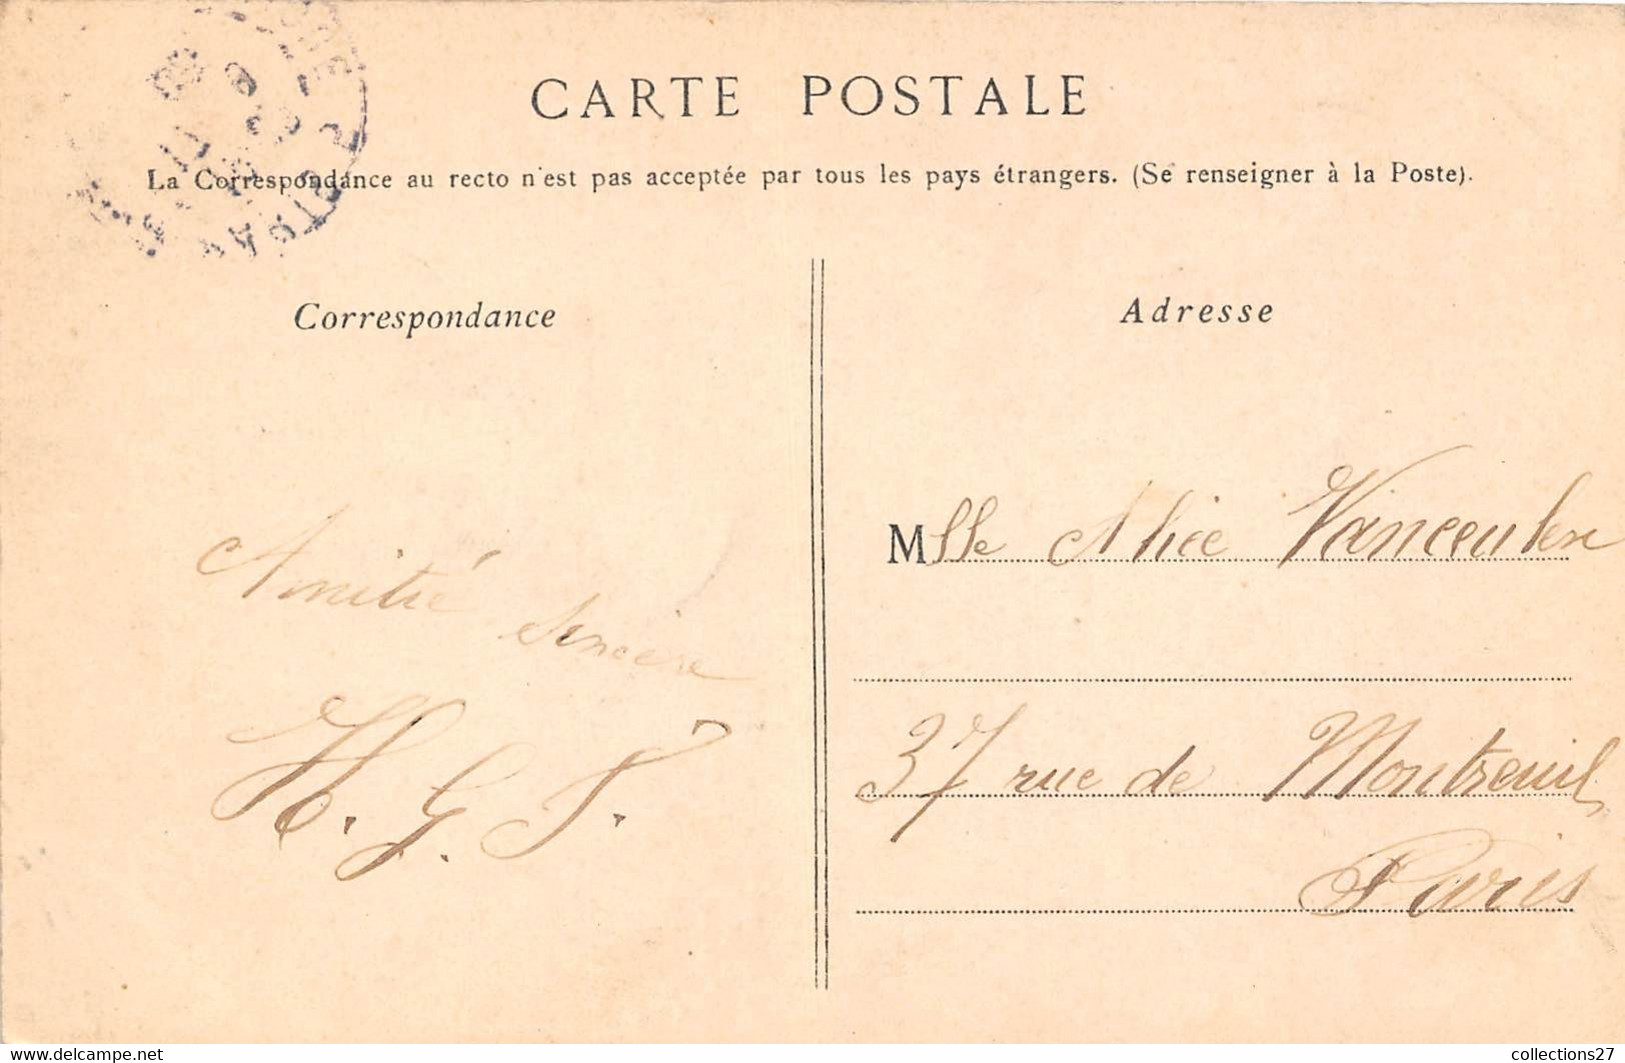 CARTE POSTALE
La Correspondance au recto n'est pas acceptée par tous les pays étrangers. (Se renseigner à la Poste).
Correspondance
Amitié sincère
H. G. T.
Adresse
Mlle Alice
37 rue de Montreuil
Paris
collections27